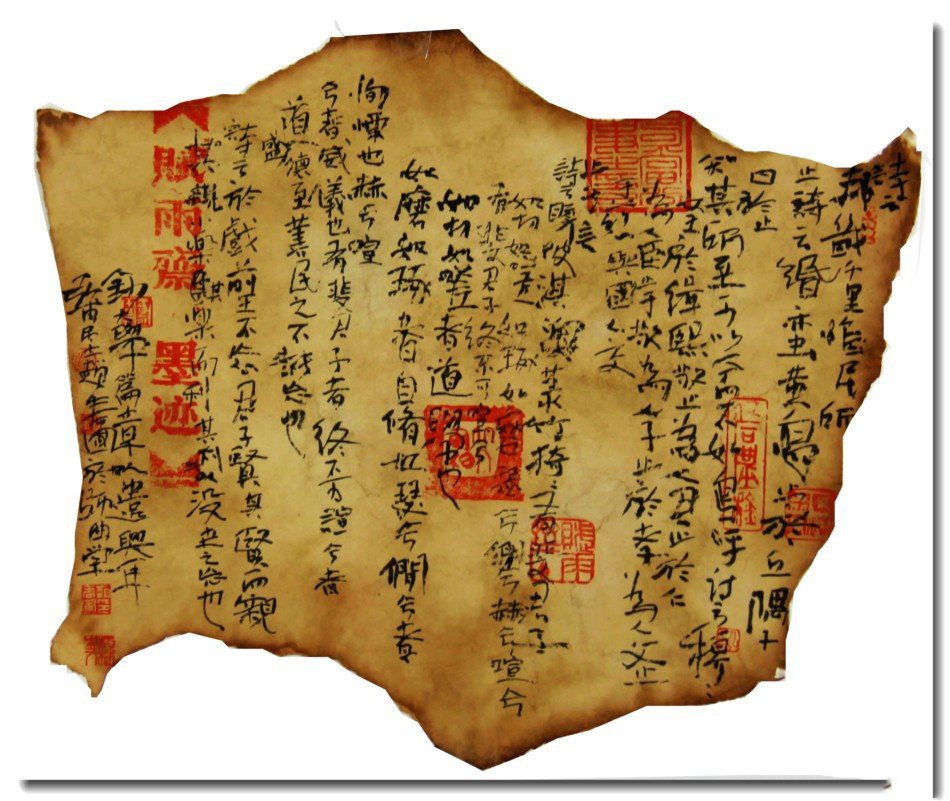 詩云
邦畿千里惟民所
止詩云緡蠻黃鳥止于丘隅子
曰於止
知其所至可以人而不如鳥乎詩云穆穆
文王於緝熙敬止為人君止於仁
為人臣止于敬為人子止於孝為人父止
於慈與國人交
止于信
詩云瞻彼淇澳菉竹猗猗有斐君子
如切如磋如琢如磨瑟兮僩兮赫兮喧兮
有斐君子終不可諠兮
如切如磋者道學也
如磨如琢者自脩也瑟兮僩兮者
恂慄也赫兮喧
兮者威儀也有斐君子者終不可諠兮者
道盛德至善民之不能忘也
詩云於戲前王不忘君子賢其賢而親
其親小人樂其樂而利其利此以沒世不忘也
賦雨齋 墨迹
錄大學篇章以遣興耳